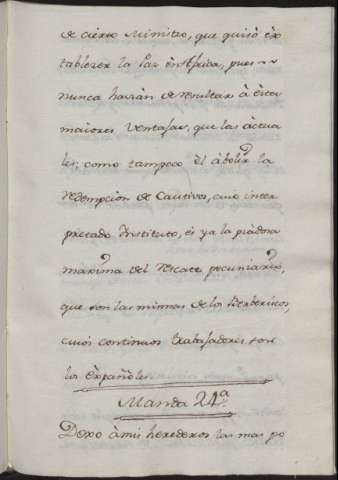 de cierto Ministro, que quisò es
tablezer la Paz en Africa, pues
nunca havian de resultar à èstos
maiores Ventajas, que las àctua
les; como tampoco èl àbolir la
redempcion de Cautivos, cuio inter
pretado Instituto, es ya la piadosa
maxima del Rescate pecuniario,
que son las minas de los Berberiscos,
cuios continuos trabajadores son
los èspañoles
Manda 24.a
Dexo à mis herederos las mas po